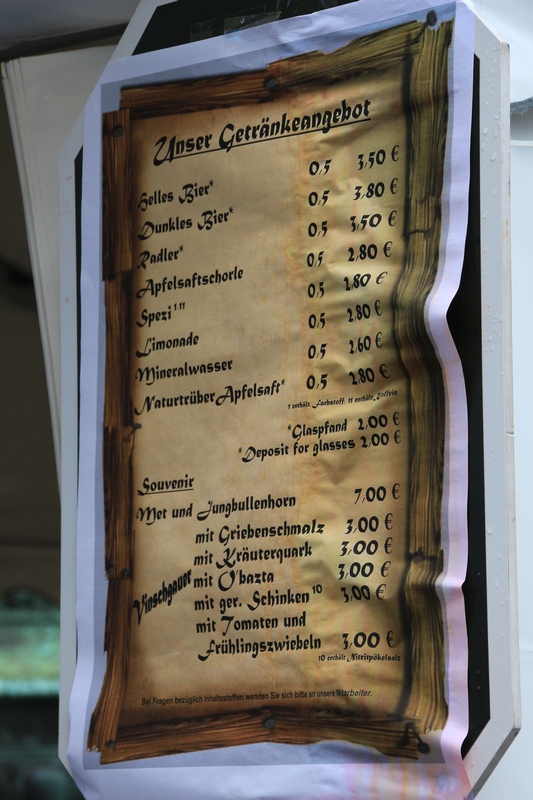 Unser Getränkeangebot
Helles Bier* 0,5 3,50 €
Dunkles Bier* 0,5 3,80 €
Radler* 0,5 3,50 €
Apfelsaftschorle 0,5 2,80 €
Spezi 1,11 0,5 2,80 €
Limonade 0,5 2,80 €
Mineralwasser 0,5 2,60 €
Naturtrüber Apfelsaft* 0,5 2,80 €
1 enthält Farbstoff, 11 enthält Koffein
*Glaspfand 2,00 €
*Deposit for glasses 2,00 €
Souvenir
Met und Jungbullenhorn 7,00 €
Vinschgauer
mit Griebenschmalz 3,00 €
mit Kräuterquark 3,00 €
mit O'bazta 3,00 €
mit ger. Schinken 10 3,00 €
mit Tomaten und
Frühlingszwiebeln 3,00 €
10 enthält Nitritpökelsalz
Bei Fragen bezüglich Inhaltsstoffen wenden Sie sich bitte an unsere Mitarbeiter.